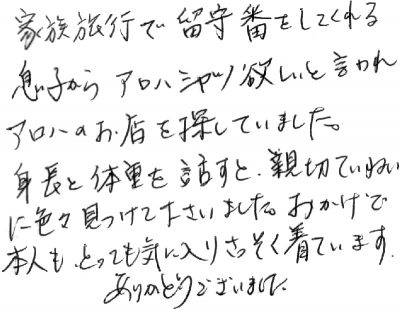 家族旅行で留守番をしてくれる
息子からアロハシャツ欲しいと言われ
アロハのお店を探していました。
身長と体重を話すと、親切ていねい
に色々見つけて下さいました。おかげで
本人も、とっても気に入りさっそく着ています。
ありがとうございました。